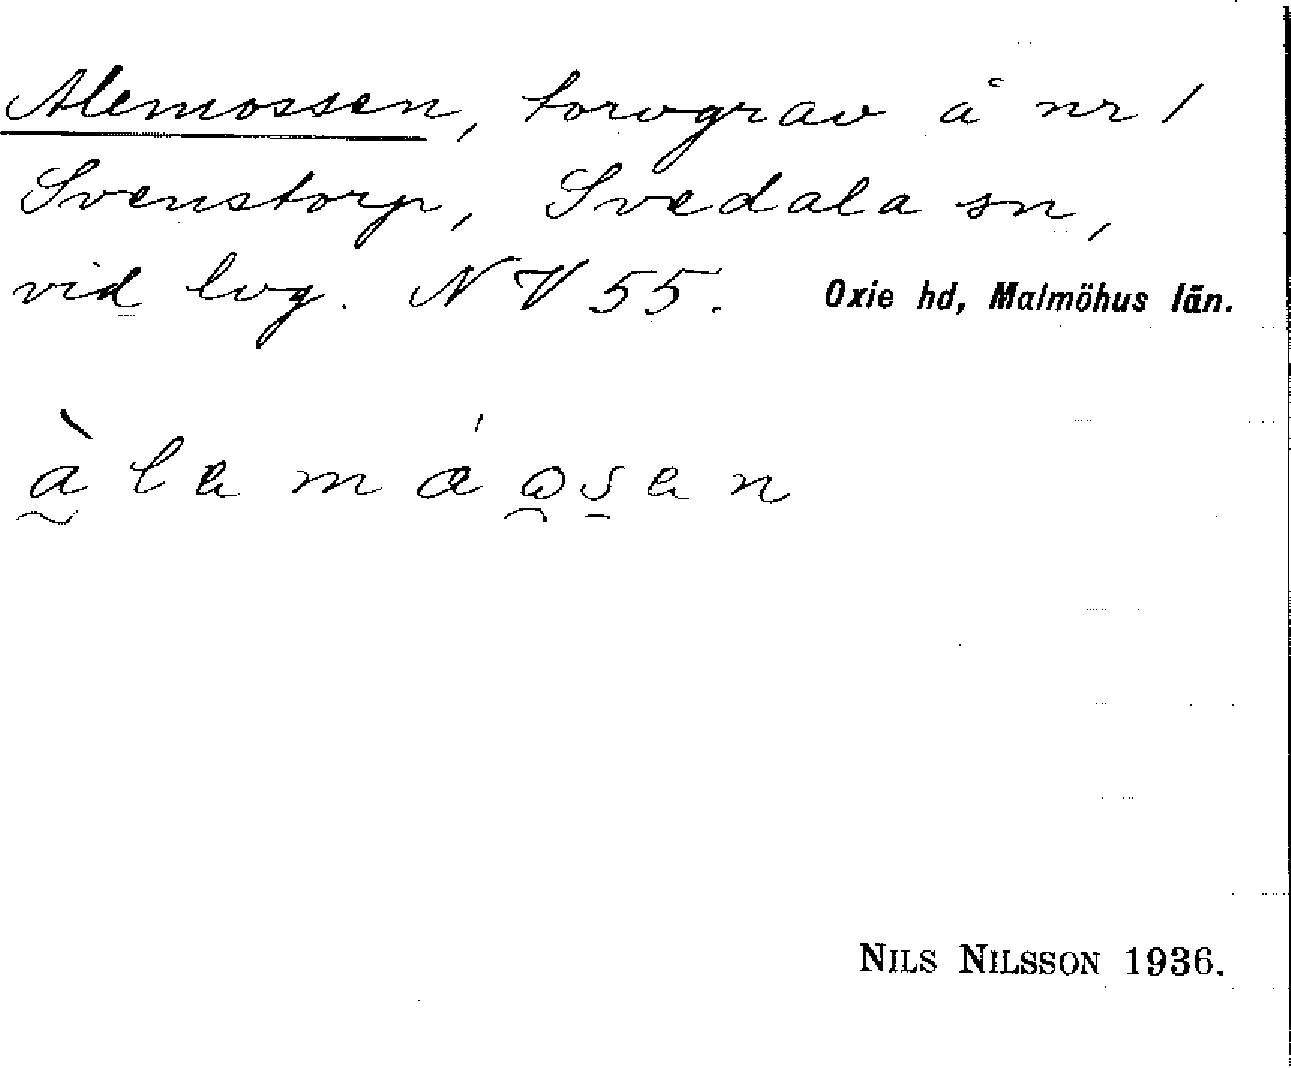 Alemossen, torvgrav å nr 1
Svenstorp, Svedala sn,
vid lvg. NV 55. Oxie hd, Malmöhus län.
àlemáosen
NILS NILSSON 1936.